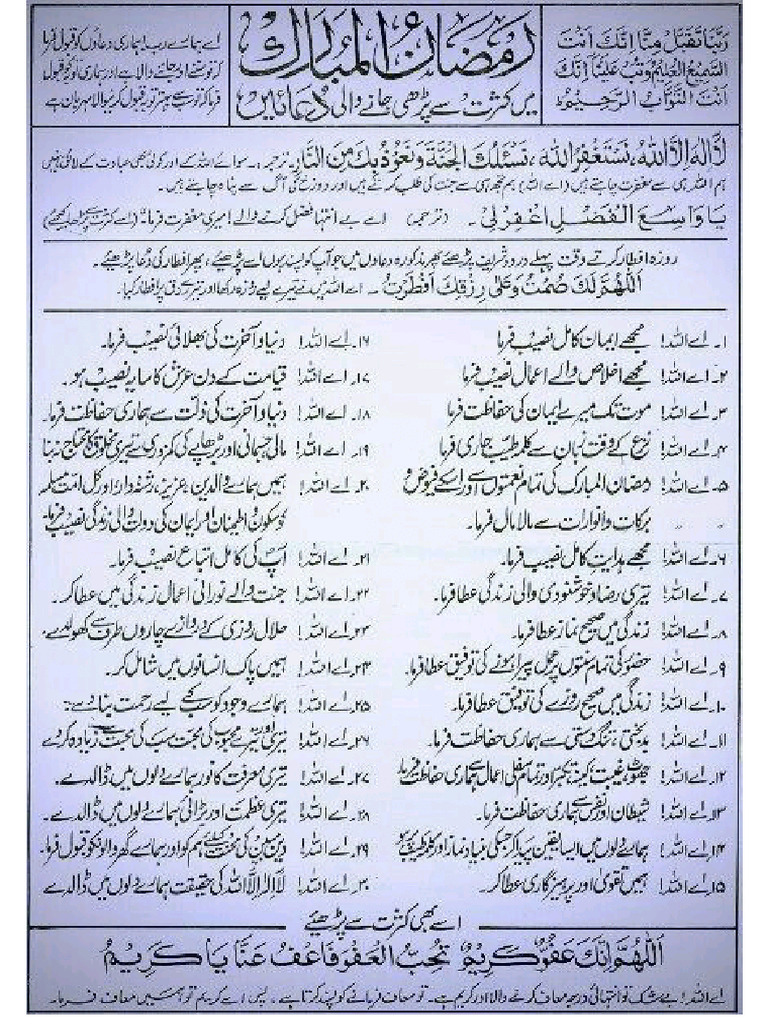 رَبَّنَا تَقَبَّلْ مِنَّا اِنَّكَ اَنْتَ
السَّمِيْعُ الْعَلِيْمُ وَتُبْ عَلَيْنَا اِنَّكَ
اَنْتَ التَّوَّابُ الرَّحِيْمُ
رمضان المبارک
میں کثرت سے پڑھی جانے والی دعائیں
اے ہمارے رب! ہماری دعاؤں کو قبول فرما
کہ تو سننے اور جاننے والا ہے اور ہماری توبہ کو قبول
فرما کہ تو سب سے بہتر توبہ قبول کرنیوالا مہربان ہے
لَا اِلٰهَ اِلَّا اللّٰهُ، نَسْتَغْفِرُ اللّٰهَ، نَسْئَلُكَ الْجَنَّةَ وَنَعُوْذُ بِكَ مِنَ النَّارِ ترجمہ:۔ سوائے اللہ کے اور کوئی بھی عبادت کے لائق نہیں
ہم اللہ ہی سے مغفرت چاہتے ہیں (اے اللہ) ہم تجھ ہی سے جنت کی طلب کرتے ہیں اور دوزخ کی آگ سے پناہ چاہتے ہیں۔
يَا وَاسِعَ الْفَضْلِ اغْفِرْ لِيْ۔ (ترجمہ) اے بے انتہا فضل کرنے والے! میری مغفرت فرما" (اسے کثرت سے پڑھتے رہیئے)
روزہ افطار کرتے وقت پہلے درود شریف پڑھئے پھر مذکورہ دعاؤں میں جو آپ کو پسند ہوں اسے پڑھیئے، پھر افطار کی دعا پڑھیئے۔
اَللّٰهُمَّ لَكَ صُمْتُ وَعَلٰى رِزْقِكَ اَفْطَرْتُ۔ اے اللہ میں نے تیرے لیے روزہ رکھا اور تیرے رزق پر افطار کیا۔
۱۔ اے اللہ! مجھے ایمان کامل نصیب فرما
۲۔ اے اللہ! مجھے اخلاص والے اعمال نصیب فرما
۳۔ اے اللہ! موت تک میرے ایمان کی حفاظت فرما
۴۔ اے اللہ! نزع کے وقت زبان سے کلمہ طیبہ جاری فرما
۵۔ اے اللہ! رمضان المبارک کی تمام نعمتوں سے اور اسکے فیوض و
〃 〃 برکات و انوارات سے مالا مال فرما۔
۶۔ اے اللہ! مجھے ہدایت کامل نصیب فرما۔
۷۔ اے اللہ! تیری رضا و خوشنودی والی زندگی عطا فرما۔
۸۔ اے اللہ! زندگی میں صحیح نماز عطا فرما۔
۹۔ اے اللہ! حضورؐ کی تمام سنتوں پر عمل پیرا ہونے کی توفیق عطا فرما۔
۱۰۔ اے اللہ! زندگی میں صحیح روزے کی توفیق عطا فرما۔
۱۱۔ اے اللہ! بدبختی، تنگدستی سے ہماری حفاظت فرما۔
۱۲۔ اے اللہ! جھوٹ، غیبت کینہ، تکبر اور تمام سفلی اعمال سے ہماری حفاظت فرما
۱۳۔ اے اللہ! شیطان اور نفس سے ہماری حفاظت فرما۔
۱۴۔ اے اللہ! ہمارے دلوں میں ایسا یقین پیدا کر جس کی بنیاد نماز اور کلمہ طیبہ
۱۵۔ اے اللہ! ہمیں تقویٰ اور پرہیزگاری عطا کر۔
۱۶۔ اے اللہ! دنیا و آخرت کی بھلائی نصیب فرما۔
۱۷۔ اے اللہ! قیامت کے دن عرش کا سایہ نصیب ہو۔
۱۸۔ اے اللہ! دنیا و آخرت کی ذلت سے ہماری حفاظت فرما۔
۱۹۔ اے اللہ! مالی جسمانی اور بڑھاپے کی کمزوری سے تیری مخلوق کا محتاج نہ بنا
۲۰۔ اے اللہ! ہمیں ہمارے والدین، عزیز، رشتہ دار، اور کل امت مسلمہ
کو سکون و اطمینان اور ایمان کی دولت والی زندگی نصیب فرما۔
۲۱۔ اے اللہ! آپؐ کی کامل اتباع نصیب فرما۔
۲۲۔ اے اللہ! جنت والے نورانی اعمال زندگی میں عطا کر۔
۲۳۔ اے اللہ! حلال روزی کے دروازے چاروں طرف سے کھول دے۔
۲۴۔ اے اللہ! ہمیں پاک انسانوں میں شامل کر۔
۲۵۔ اے اللہ! ہمارے وجود کو سب کے لیے رحمت بنا دے۔
۲۶۔ اے اللہ! تیری اور تیرے محبوب کی محبت سب کی محبت سے زیادہ کر دے
۲۷۔ اے اللہ! تیری معرفت کا نور ہمارے دلوں میں ڈالدے۔
۲۸۔ اے اللہ! تیری عظمت اور بڑائی ہمارے دلوں میں ڈالدے۔
۲۹۔ اے اللہ! دین مبین کی محنت کیلئے ہم کو اور ہمارے گھر والونکو قبول فرما۔
۳۰۔ اے اللہ! لا الہ الا اللہ کی حقیقت ہمارے دلوں میں ڈالدے
اسے بھی کثرت سے پڑھیئے
اَللّٰهُمَّ اِنَّكَ عَفُوٌّ كَرِيْمٌ تُحِبُّ الْعَفْوَ فَاعْفُ عَنَّا يَا كَرِيْمُ
اے اللہ! بے شک تو انتہائی درجہ معاف کرنے والا اور کریم ہے۔ تو معاف فرمانے کو پسند کرتا ہے۔ پس اے کریم تو ہمیں معاف فرما۔